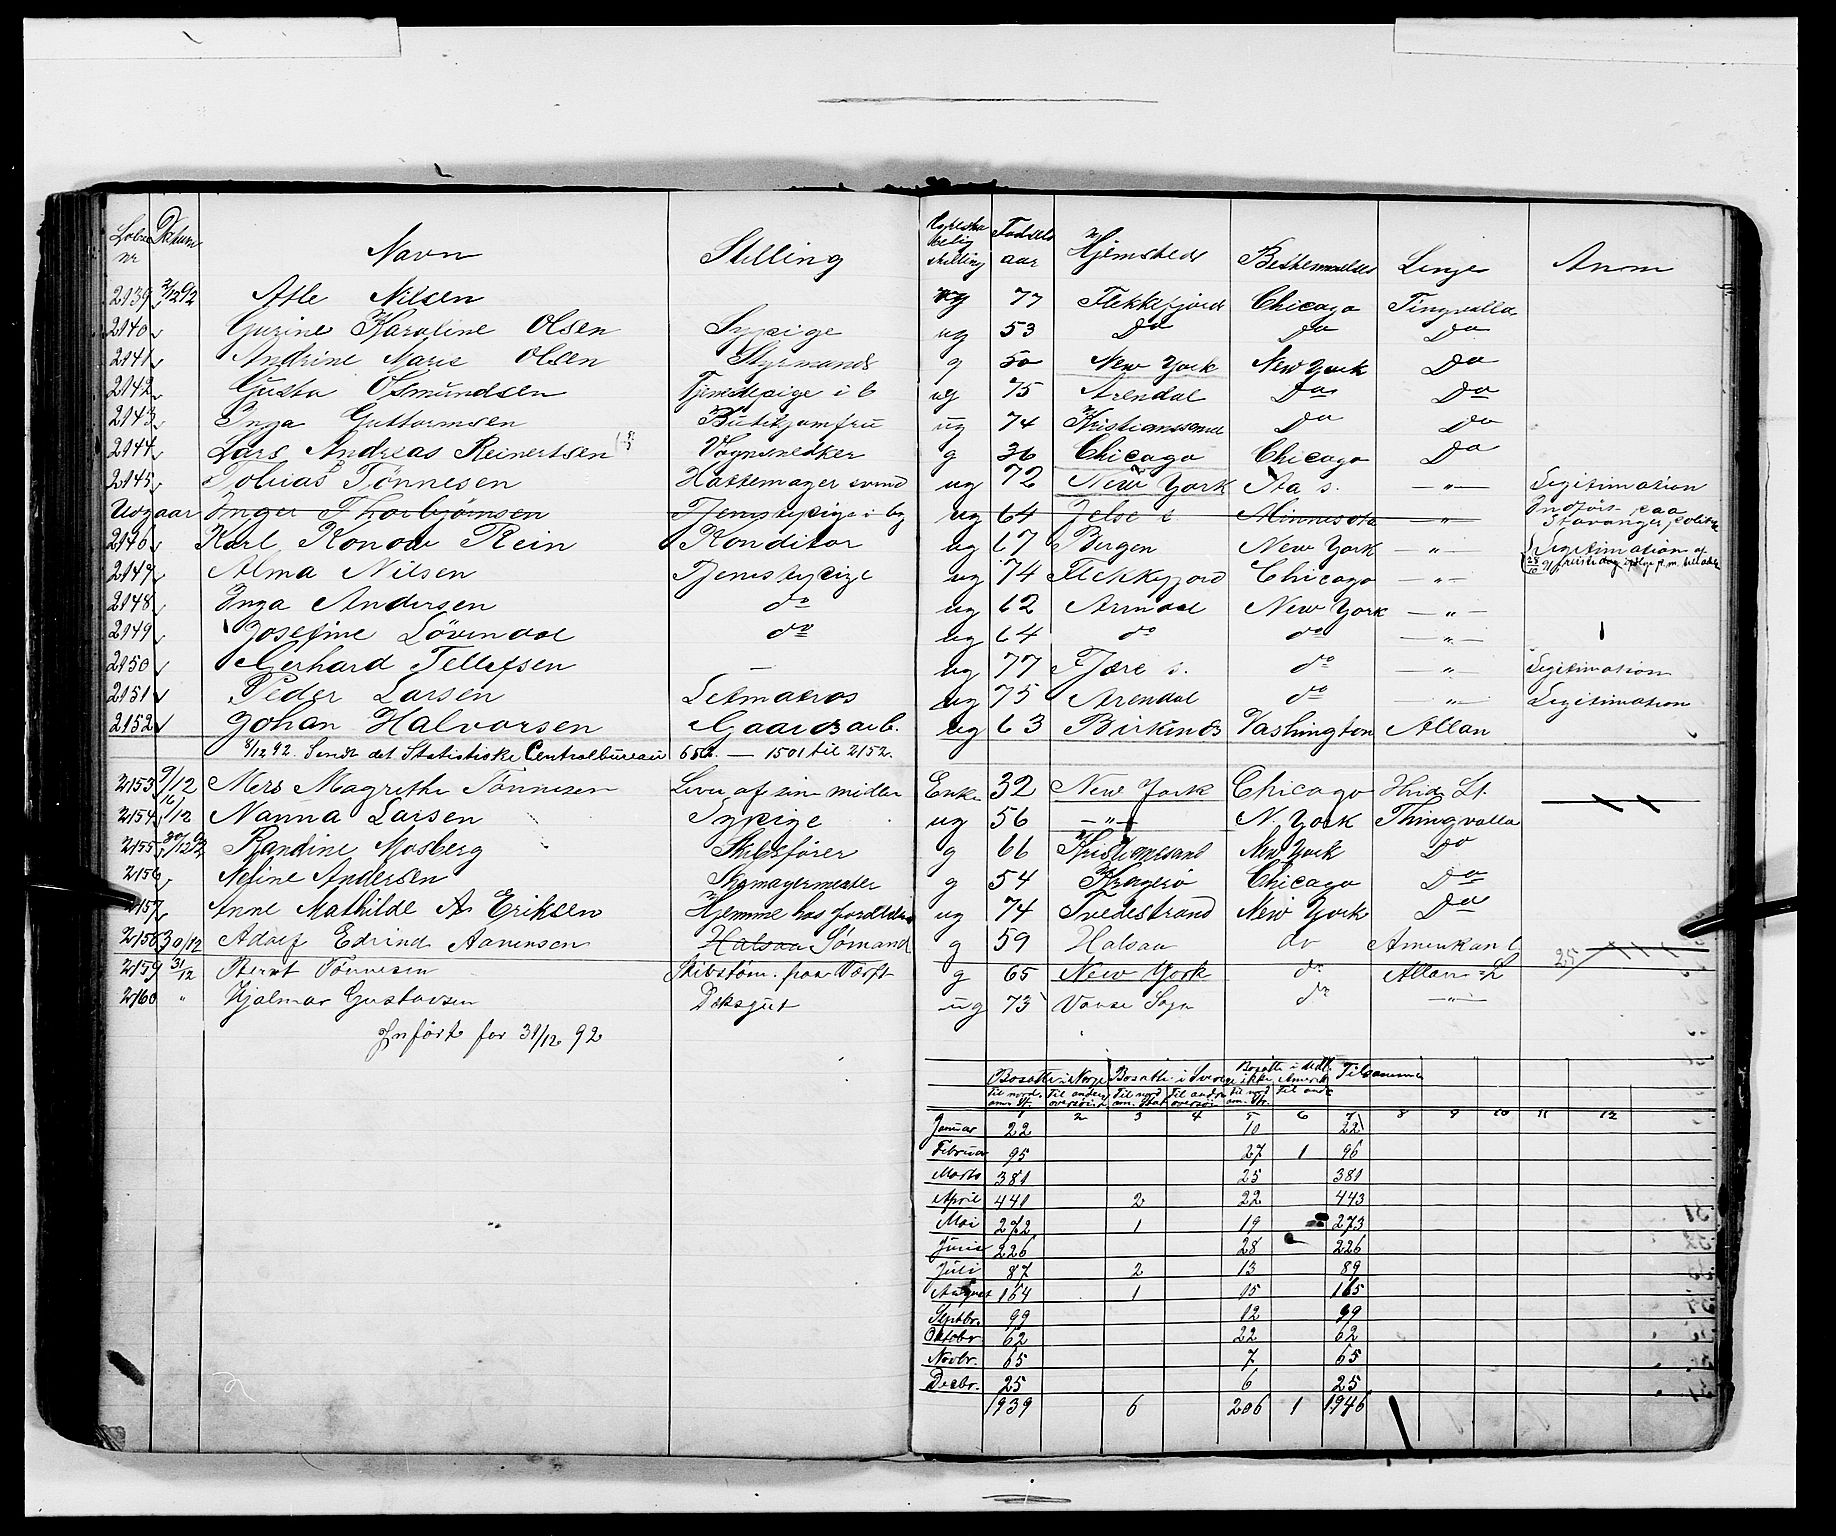 Løbe nr Datum Navn Stilling Ægteska belig stilling Fødsels aar Hjemsteds Bestemmelses Linje Anm
2139 2/12 92 Atle Nilsen ug 77 Flekkefjord Chicago Tingvalla
2140 Gurine Karoline Olsen Sypige ug 53 Do Do Do
2141 Andrine Marie Olsen Styrmands g 50 New York New York Do
2142 Gusta Osmundsen Tjenestepige i b ug 75 Arendal Do Do
2143 Inga Guttormsen Butikjomfru ug 74 Kristianssand Do Do
2144 Lars Andreas Reinertsen Vognsnedker g 36 Chicago Chicago Do
2145 Tobias Tønnesen Hattemager svend ug 72 New York Aa s. — " — Legitimation
Udgaar Inger Thorbjørnsen Tjenestepige i by ug 64 Jelse s. Minnesota — " — Indført paa Stavanger politik
2146 Karl Konow Rein Konditor ug 67 Bergen New York — " — Legitimation af
2147 Alma Nilsen Tjenestepige ug 74 Flekkefjord Chicago — " —
2148 Inga Andersen do ug 62 Arendal New York — " —
2149 Josefine Løvendal do ug 64 do do — " —
2150 Gerhard Tellefsen — ug 77 Fjære s. do — " — Legitimation
2151 Peder Larsen Letmatros ug 75 Arendal do — " — Legitimation
2152 Johan Halvorsen Gaardsarb. ug 63 Birkenæs Vashington Allan
8/12 92. Sendt det Statistiske Centralbureau 652 — 1501 til 2152.
2153 9/12 Mers Magrethe Tønnesen Lever af sine midler Enke 32 New York Chicago Hvid St.
2154 16/12 Nanna Larsen Sypige ug 56 — " — N. York Thingvalla
2155 30/12 92 Randine Mosberg Skibsfører g 66 Kristianssand New York Do
2156 Nefine Andersen Skomagermester g 54 Kragerø Chicago Do
2157 Anne Mathilde A Eriksen Hjemme hos forældre ug 74 Tvedestrand New York Do
2158 30/12 Adolf Edvind Aanensen Halsaa Sømand g 59 Halsaa do Amerikan L
2159 31/12 Bernt Tønnesen Skibstøm. paa Værft g 65 New York do Allan = L
2160 " Hjalmar Gustavsen Daksgut ug 73 Vanse Sogn do — " —
Indført for 31/12 92
Bosatte i Norge Bosatte i Sverige Bosatte i Amerik Tilsammen
til nord. am. St. Til anden oversøi Til nord am. Stat Til andre oversøi til nord am. St. Til andre
1 2 3 4 5 6 7 8 9 10 11 12
Januar 22 10 22
Februar 95 27 1 96
Marts 381 25 381
April 441 2 22 443
Mai 272 1 19 273
Juni 226 28 226
Juli 87 2 13 89
August 164 1 15 165
Septbr. 99 12 99
Oktobr. 62 22 62
Novbr. 65 7 65
Decbr. 25 6 25
1939 6 206 1 1946